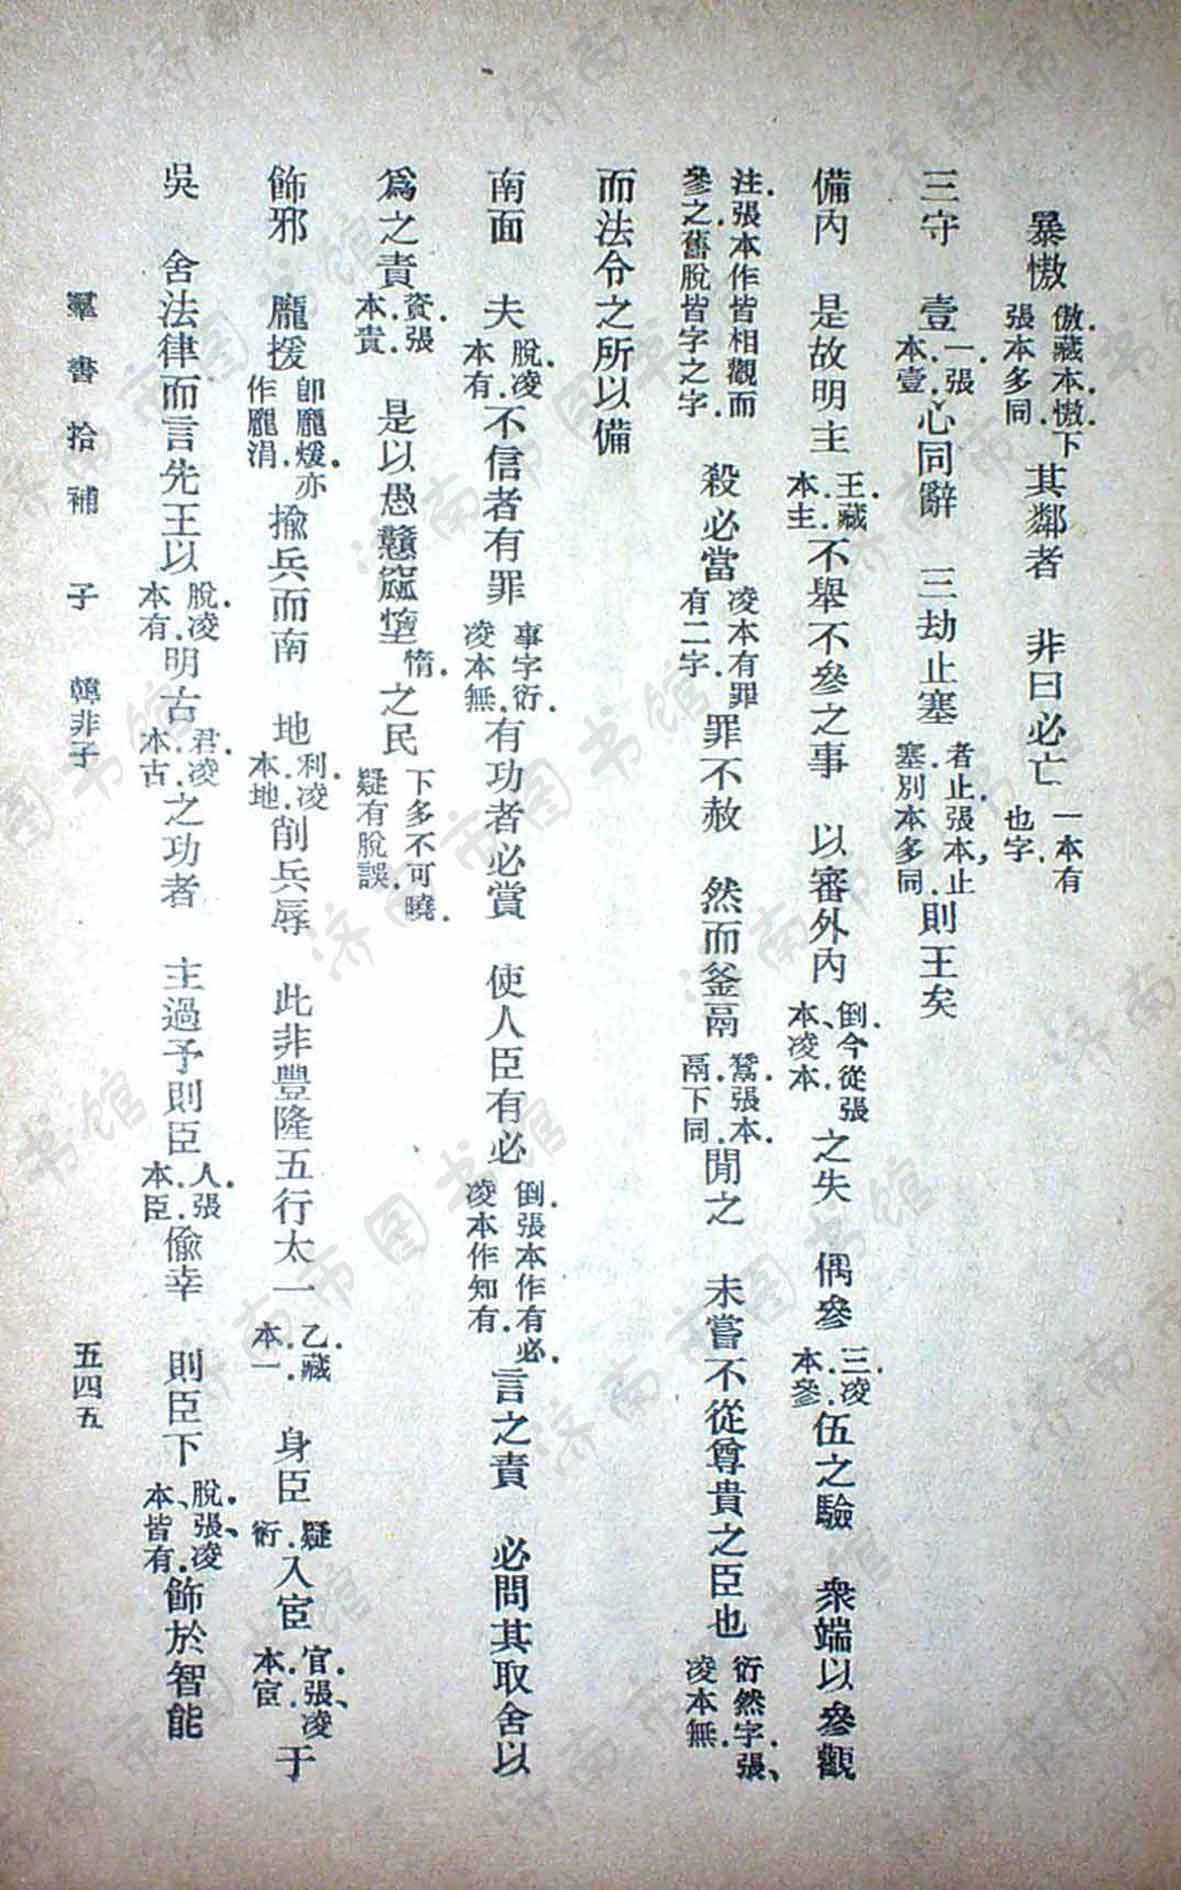 暴憿傲.藏本.憿.下張本多同.其鄰者　非曰必亡一本有也字.
三守　壹一.張本.壹.心同辭　三劫止塞者止.張本,止塞別本多同.則王矣
備內　是故明主王.藏本.主.不舉不參之事　以審外內倒.今從張本、凌本.之失　偶參三.凌本.參.伍之驗　衆端以參觀
注.張本作皆相觀而參之.舊脫皆字之字.　殺必當凌本有罪有二字.罪不赦　然而釜鬲鬵.張本.鬲.下同.閒之　未嘗不從尊貴之臣也衍然字.張、凌本無.
而法令之所以備
南面　夫脫.凌本.有.不信者有罪事字衍.凌本無.有功者必賞　使人臣有必倒.張本作有必.凌本作知有.言之責　必問其取舍以
爲之責資.張本.責.　是以愚戇窳墯惰.之民下多不可曉.疑有脫誤.
飾邪　龐援卽龐煖.亦作龐涓.揄兵而南　地利.凌本.地.削兵辱　此非豐隆五行太一乙.藏本.一.　身臣疑衍.入宦官.張、凌本.宦.于
吳　舍法律而言先王以脫.凌本.有.明古君.凌本.古.之功者　主過予則臣人.張本.臣.偸幸　則臣下脫.張、凌本、皆有.飾於智能
羣書拾補　子　韓非子
五四五
济南市图书馆